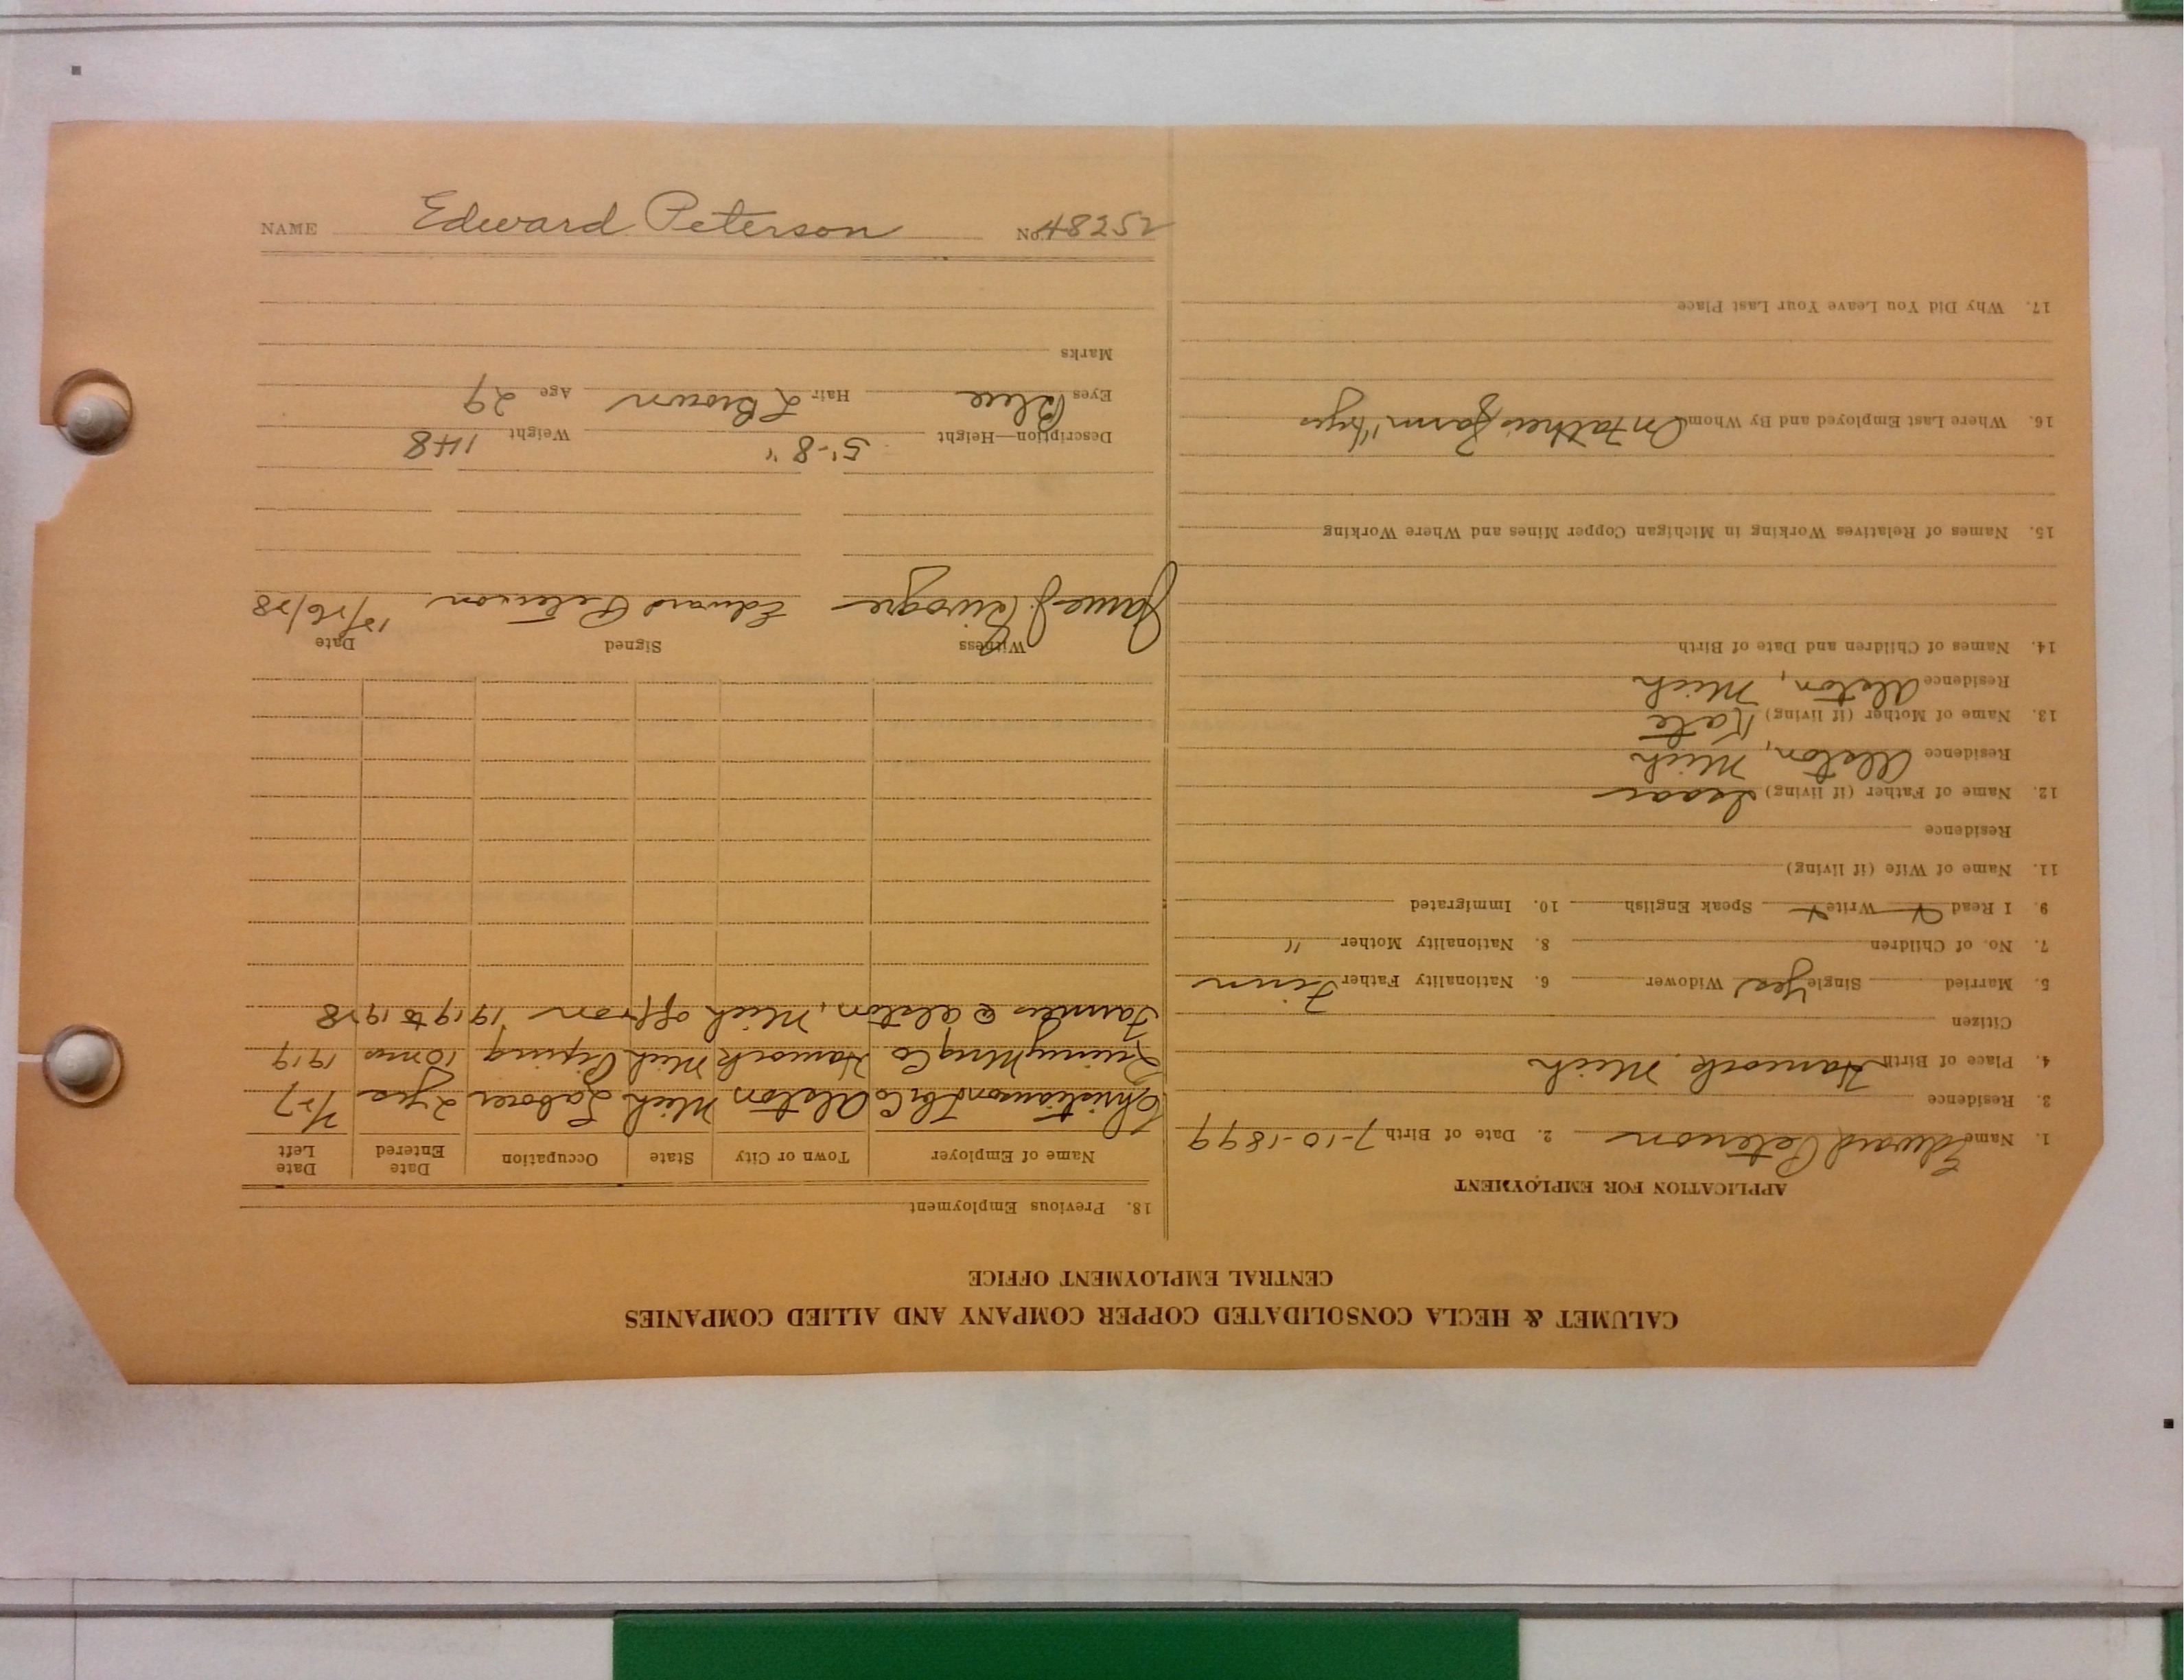 NAME Edward Peterson No. 48252
CALUMET & HECLA CONSOLIDATED COPPER COMPANY AND ALLIED COMPANIES
CENTRAL EMPLOYMENT OFFICE
APPLICATION FOR EMPLOYMENT
1. Name Edward Peterson 2. Date of Birth 7-10-1899
3. Residence
4. Place of Birth Hancock Mich
Citizen
5. Married Single Yes Widower 6. Nationality Father Finn
7. No. of Children 8. Nationality Mother "
9. I Read x Write x Speak English 10. Immigrated
11. Name of Wife (if living)
Residence
12. Name of Father (if living) Isaac
Residence Alston, Mich
13. Name of Mother (if living) Kate
Residence Alston, Mich
14. Names of Children and Date of Birth
15. Names of Relatives Working in Michigan Copper Mines and Where Working
16. Where Last Employed and By Whom On Fathers farm
17. Why Did You Leave Your Last Place
18. Previous Employment
Name of Employer Town or City State Occupation Date Entered Date Left
Christianson Lbr Co Alston Mich Laborer 2 yrs
Quincy Mng Co Hancock Mich Piping 10 mos 1919
Farmer @ Alston, Mich off & on 1919 to 1928
Witness Signed Date
James J. Edward Peterson 12/26/28
Description—Height 5'-8" Weight 148
Eyes Blue Hair L Brown Age 29
Marks